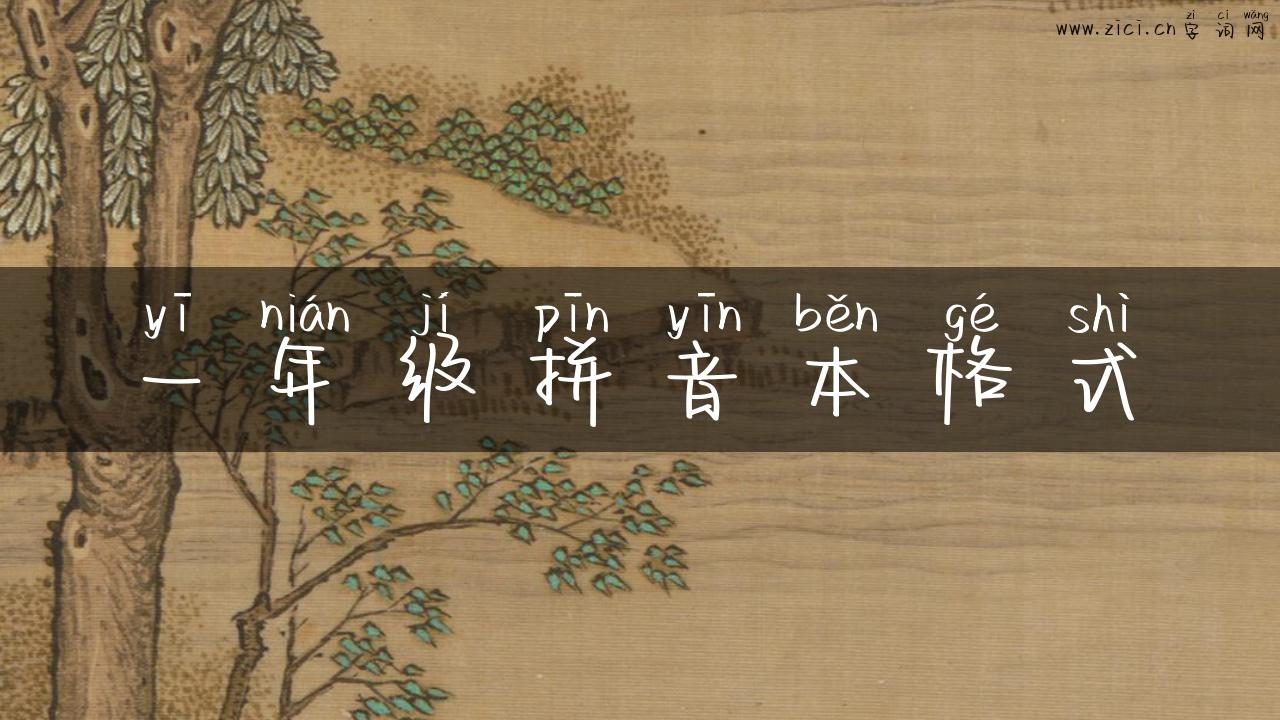 zì cí wǎng
www.zici.cn 字词网
yī nián jí pīn yīn běn gé shì
一年级拼音本格式